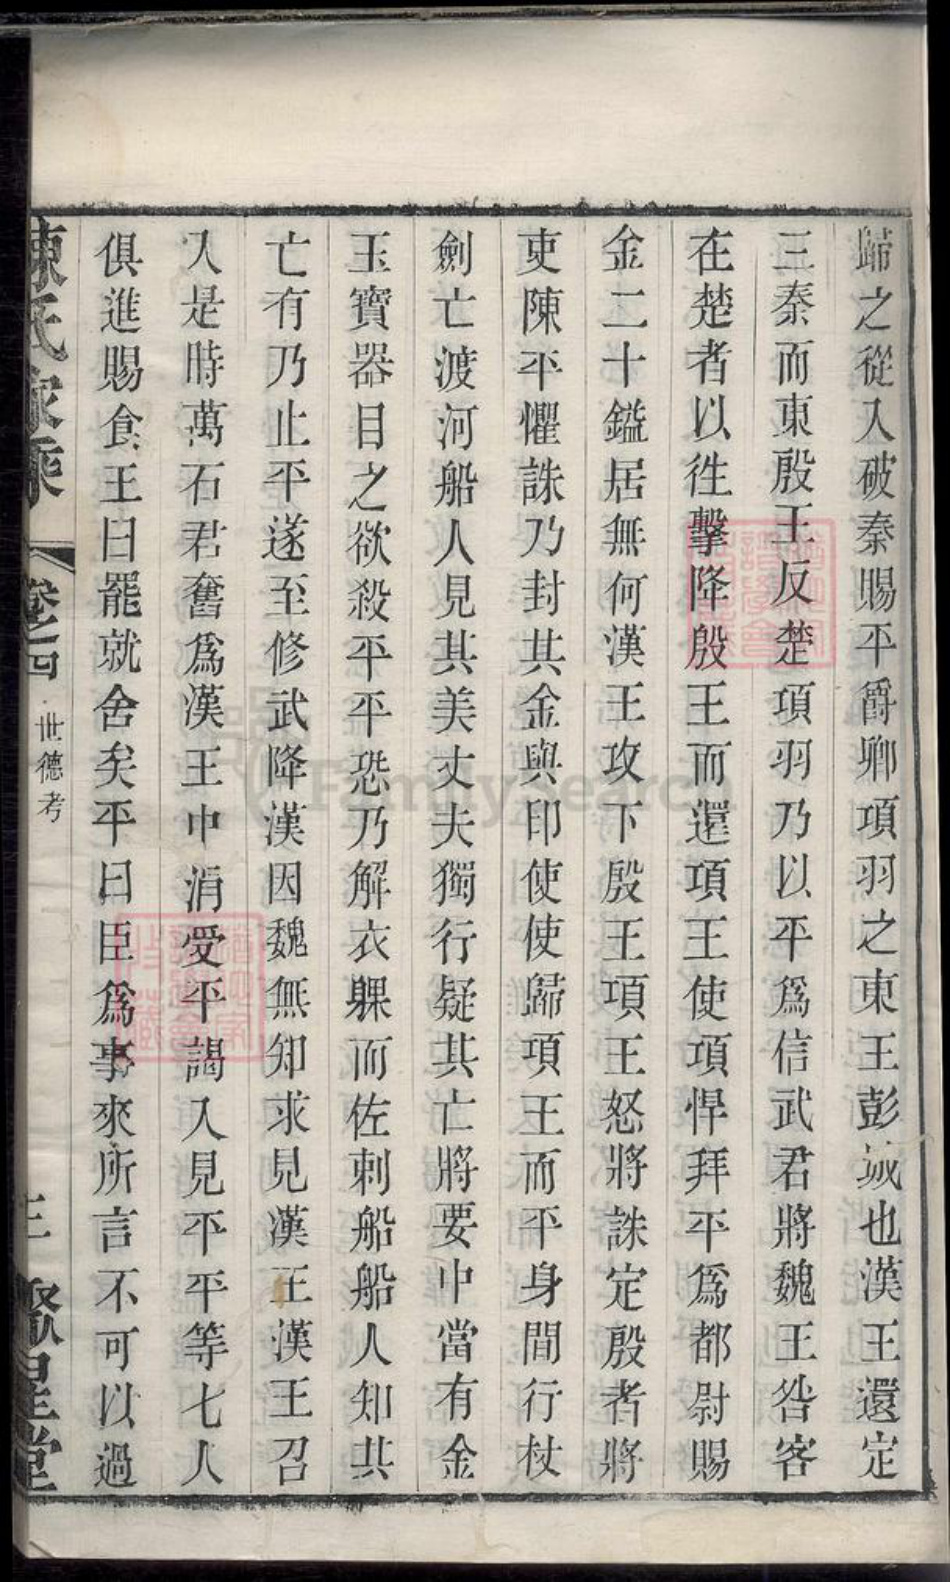 歸之從入破秦賜平爵卿項羽之東王彭城也漢王還定
三秦而東殷王反楚項羽乃以平爲信武君將魏王咎客
在楚者以徃擊降殷王而還項王使項悍拜平爲都尉賜
金二十鎰居無何漢王攻下殷王項王怒將誅定殷者將
吏陳平懼誅乃封其金與印使使歸項王而平身間行杖
劍亡渡河船人見其美丈夫獨行疑其亡將要中當有金
玉寶器目之欲殺平平恐乃解衣躶而佐刺船船人知其
亡有乃止平遂至修武降漢因魏無知求見漢王漢王召
入是時萬石君奮爲漢王中涓受平謁入見平平等七人
俱進賜食王曰罷就舍矣平曰臣爲事來所言不可以過
陳氏家乘 卷之四 世德考 三 聚星堂
FamilySearch